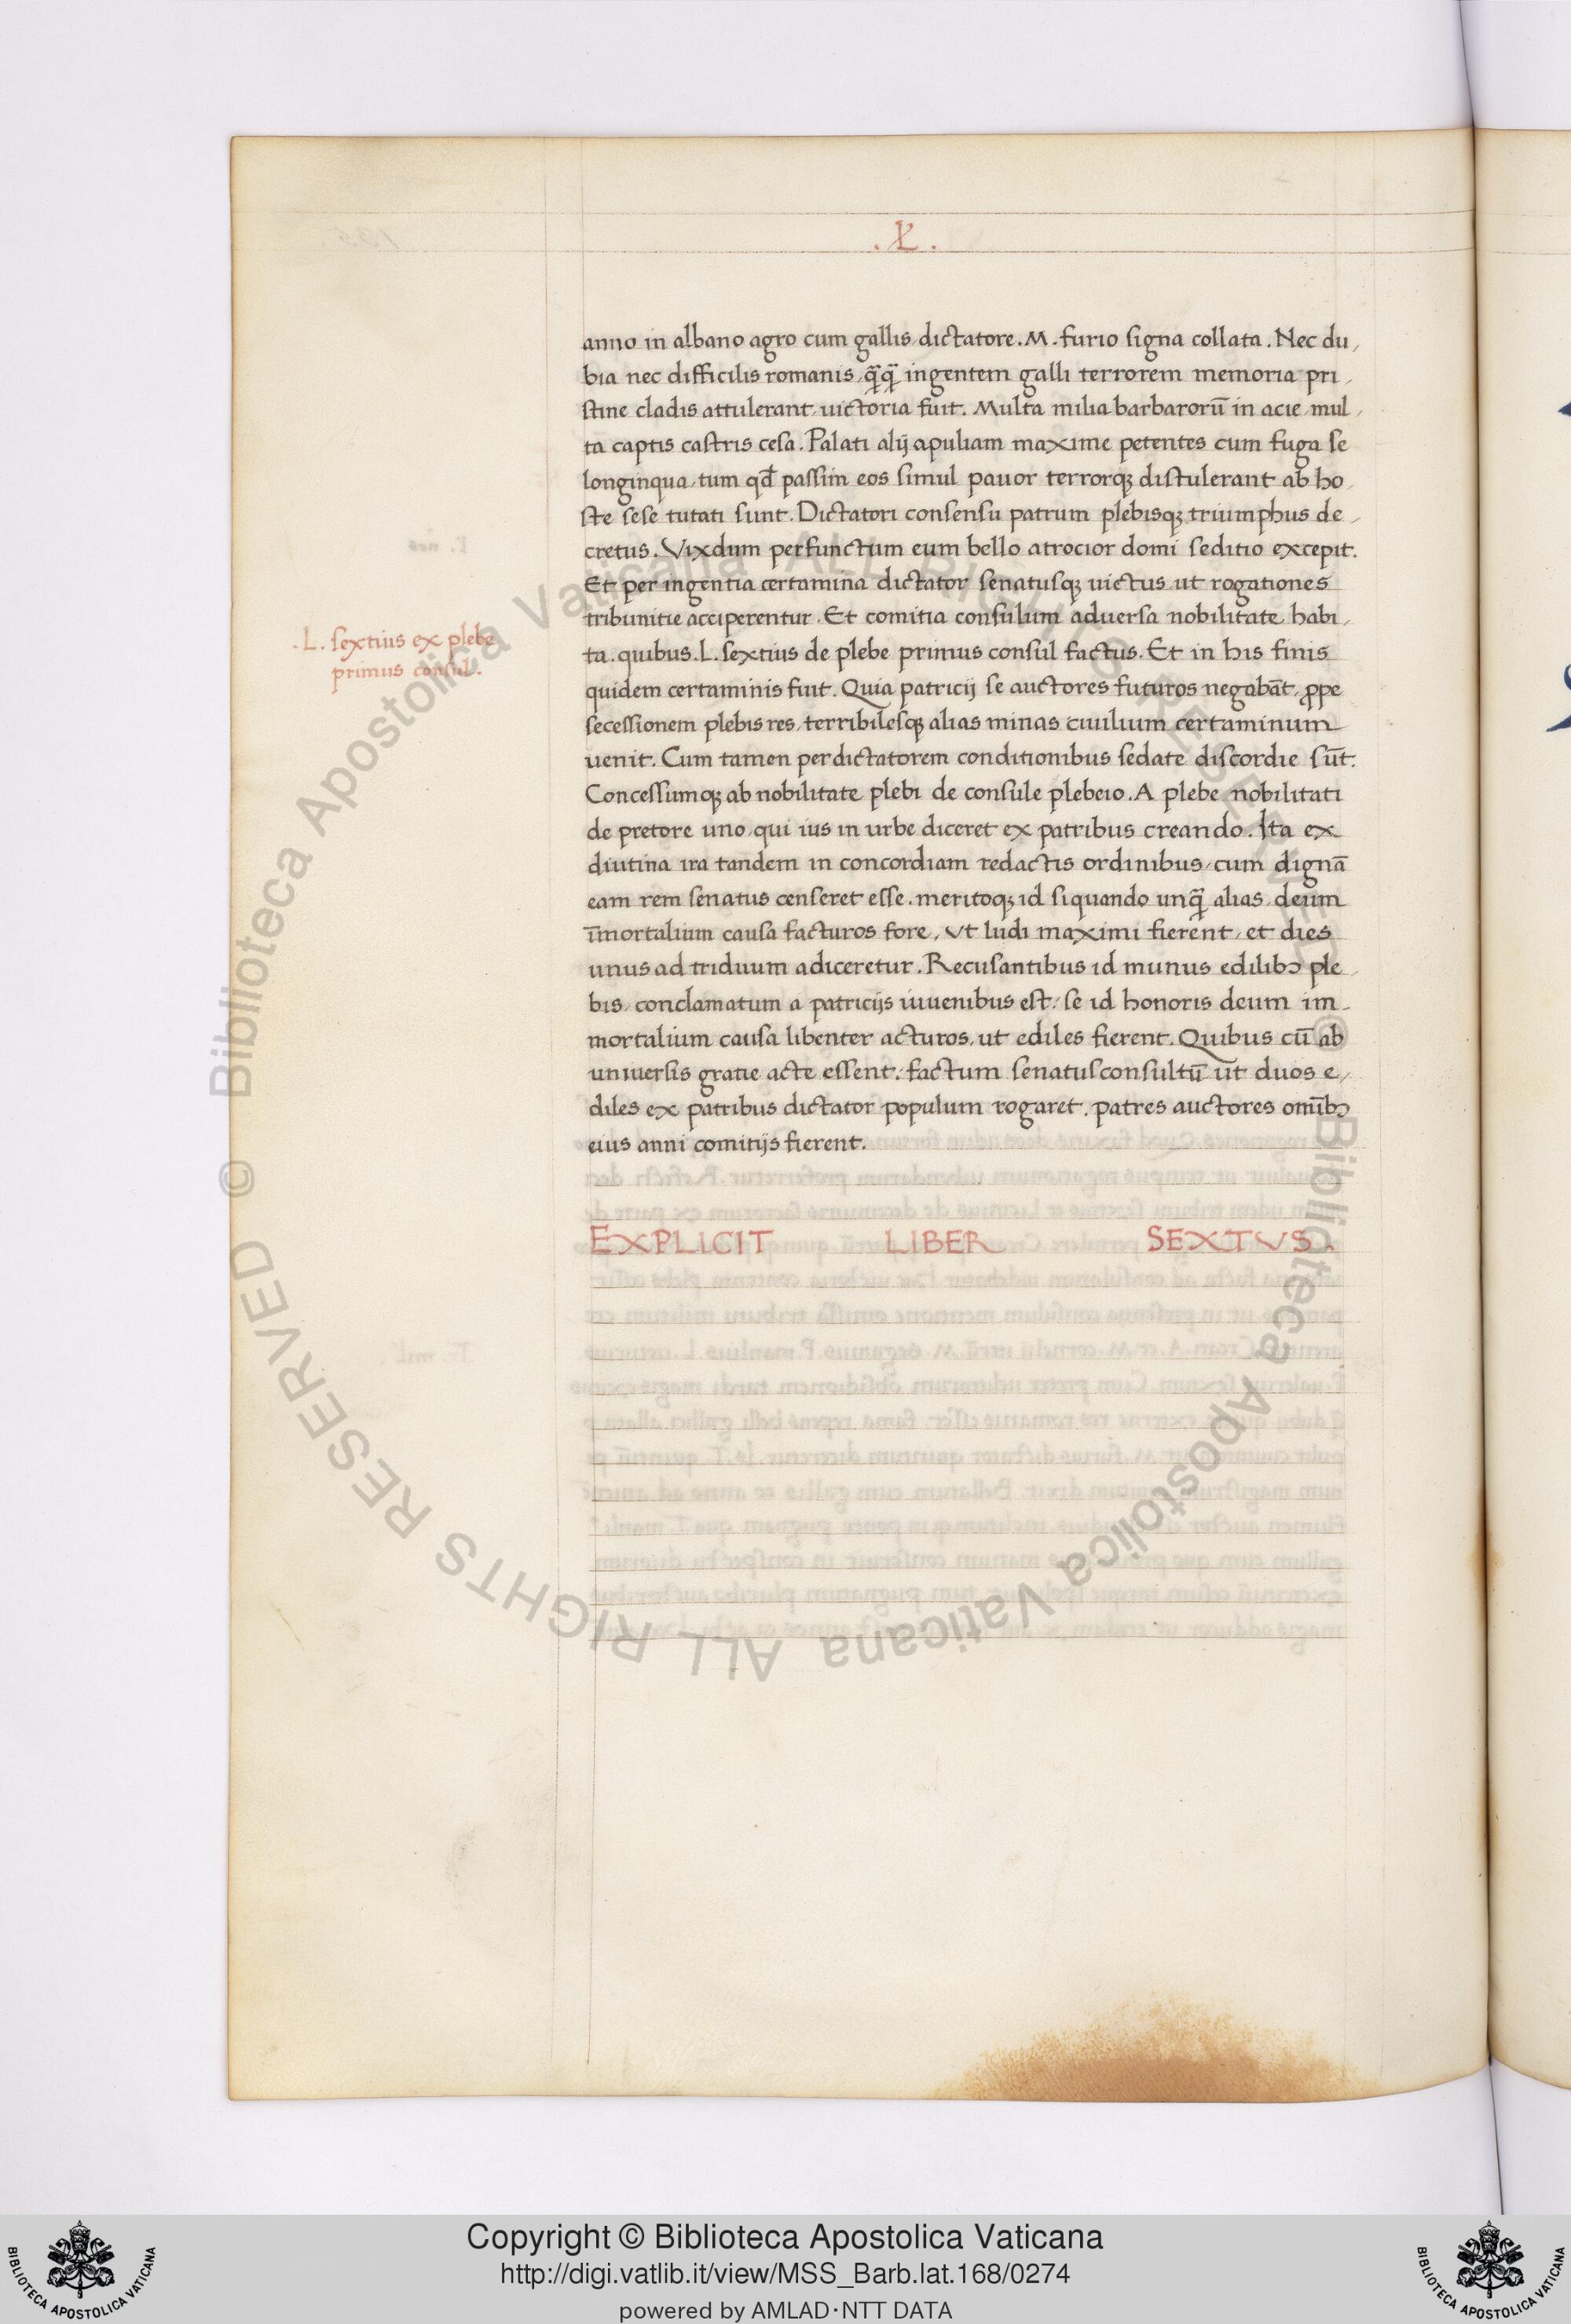 .X.
anno in albano agro cum gallis, dictatore. M. furio signa collata. Nec du,
bia nec difficilis romanis, q̄q̄ ingentem galli terrorem memoria pri,
stine cladis attulerant, uictoria fuit. Multa milia barbarorū in acie, mul,
ta captis castris cesa. Palati alij apuliam maxime petentes cum fuga se
longinqua, tum qd̄ passim eos simul pauor terrorqꝫ distulerant ab ho,
ste sese tutati sunt. Dictatori consensu patrum plebisqꝫ triumphus de,
cretus. Vixdum perfunctum eum bello atrocior domi seditio excepit.
Et per ingentia certamina dictator senatusqꝫ uictus, ut rogationes
tribunitie acciperentur. Et comitia consulum aduersa nobilitate habi,
ta. quibus. L. sextius de plebe primus consul factus. Et in his finis
.L. sextius ex plebe
primus consul.
quidem certaminis fuit. Quia patricij se auctores futuros negabāt, ꝓpe
secessionem plebis res, terribilesqꝫ alias minas ciuilium certaminum
uenit. Cum tamen per dictatorem conditionibus sedate discordie sūt.
Concessumqꝫ ab nobilitate plebi de consule plebeio. A plebe nobilitati
de pretore uno, qui ius in urbe diceret ex patribus creando. Ita ex
diutina ira tandem in concordiam redactis ordinibus, cum dignā
eam rem senatus censeret esse. meritoqꝫ id si quando unq̄ alias, deum
īmortalium causa facturos fore, Vt ludi maximi fierent, et dies
unus ad triduum adiceretur. Recusantibus id munus edilibꝫ ple,
bis, conclamatum a patricijs iuuenibus est, se id honoris deum im-
mortalium causa libenter acturos, ut ediles fierent. Quibus cū ab
uniuersis gratie acte essent. factum senatusconsultū ut duos e,
diles ex patribus dictator populum rogaret. patres auctores omībꝫ
eius anni comitijs fierent.
EXPLICIT LIBER SEXTVS.
© Biblioteca Apostolica Vaticana ALL RIGHTS RESERVED
© Biblioteca Apostolica Vaticana ALL RIGHTS RESERVED
BIBLIOTECA APOSTOLICA VATICANA
Copyright © Biblioteca Apostolica Vaticana
http://digi.vatlib.it/view/MSS_Barb.lat.168/0274
powered by AMLAD·NTT DATA
BIBLIOTECA APOSTOLICA VATICANA